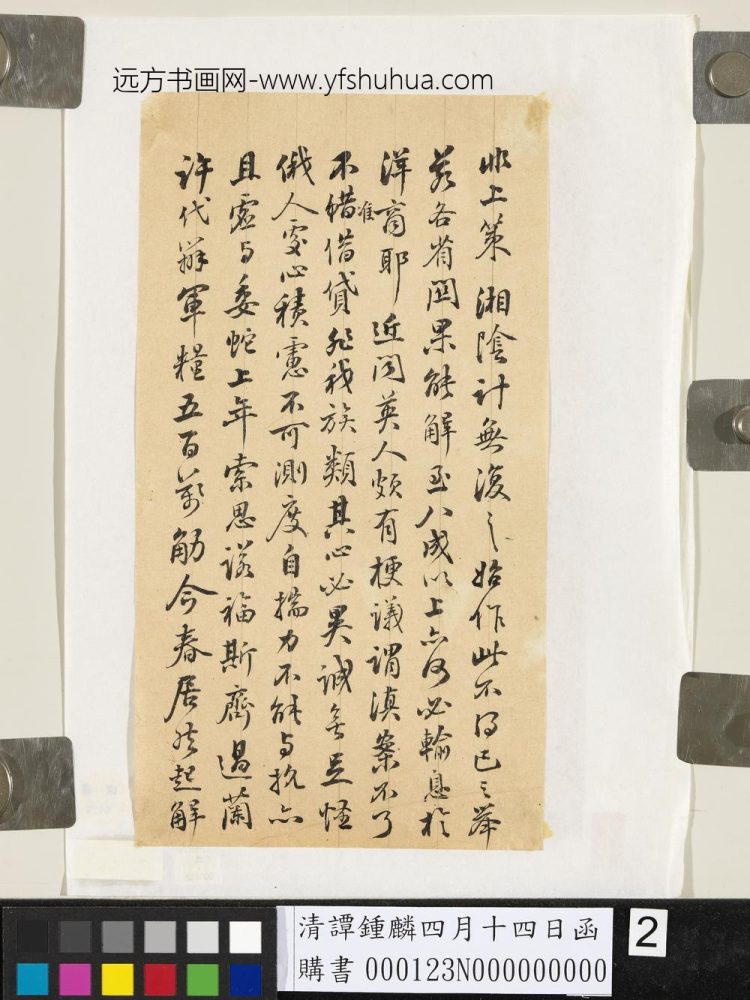 远方书画网-www.yfshuhua.com
非上策 湘陰計無復之始作此不得已之舉
若各省関果能解至八成以上亦何必輸息於
洋商耶 近聞英人頗有梗議謂滇案不了
不准借貸非我族類其心必異誠無足怪
俄人處心積慮不可測度自揣力不能与抗亦
且虛与委蛇上年索思諾福斯齊過蘭
許代辦軍糧五百萬觔今春居然起解
清譚鍾麟四月十四日函
購書 000123N000000000
2